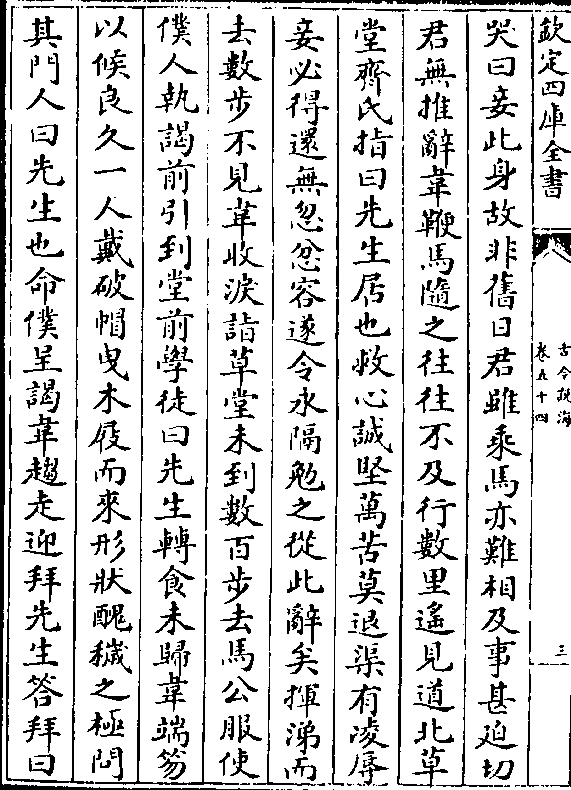 欽定四庫全書
古今說海
卷五十四
三
哭曰妾此身故非舊日君雖乘馬亦難相及事甚迫切
君無推辭韋鞭馬隨之往往不及行數里遙見道北草
堂齊氏指曰先生居也救心誠堅萬苦莫退渠有凌辱
妾必得還無忽忿容遂令永隔勉之從此辭矣揮涕而
去數步不見韋收淚詣草堂未到數百步去馬公服使
僕人執謁前引到堂前學徒曰先生轉食未歸韋端笏
以候良久一人戴破帽曳木屐而來形狀醜穢之極問
其門人曰先生也命僕呈謁韋趨走迎拜先生答拜曰